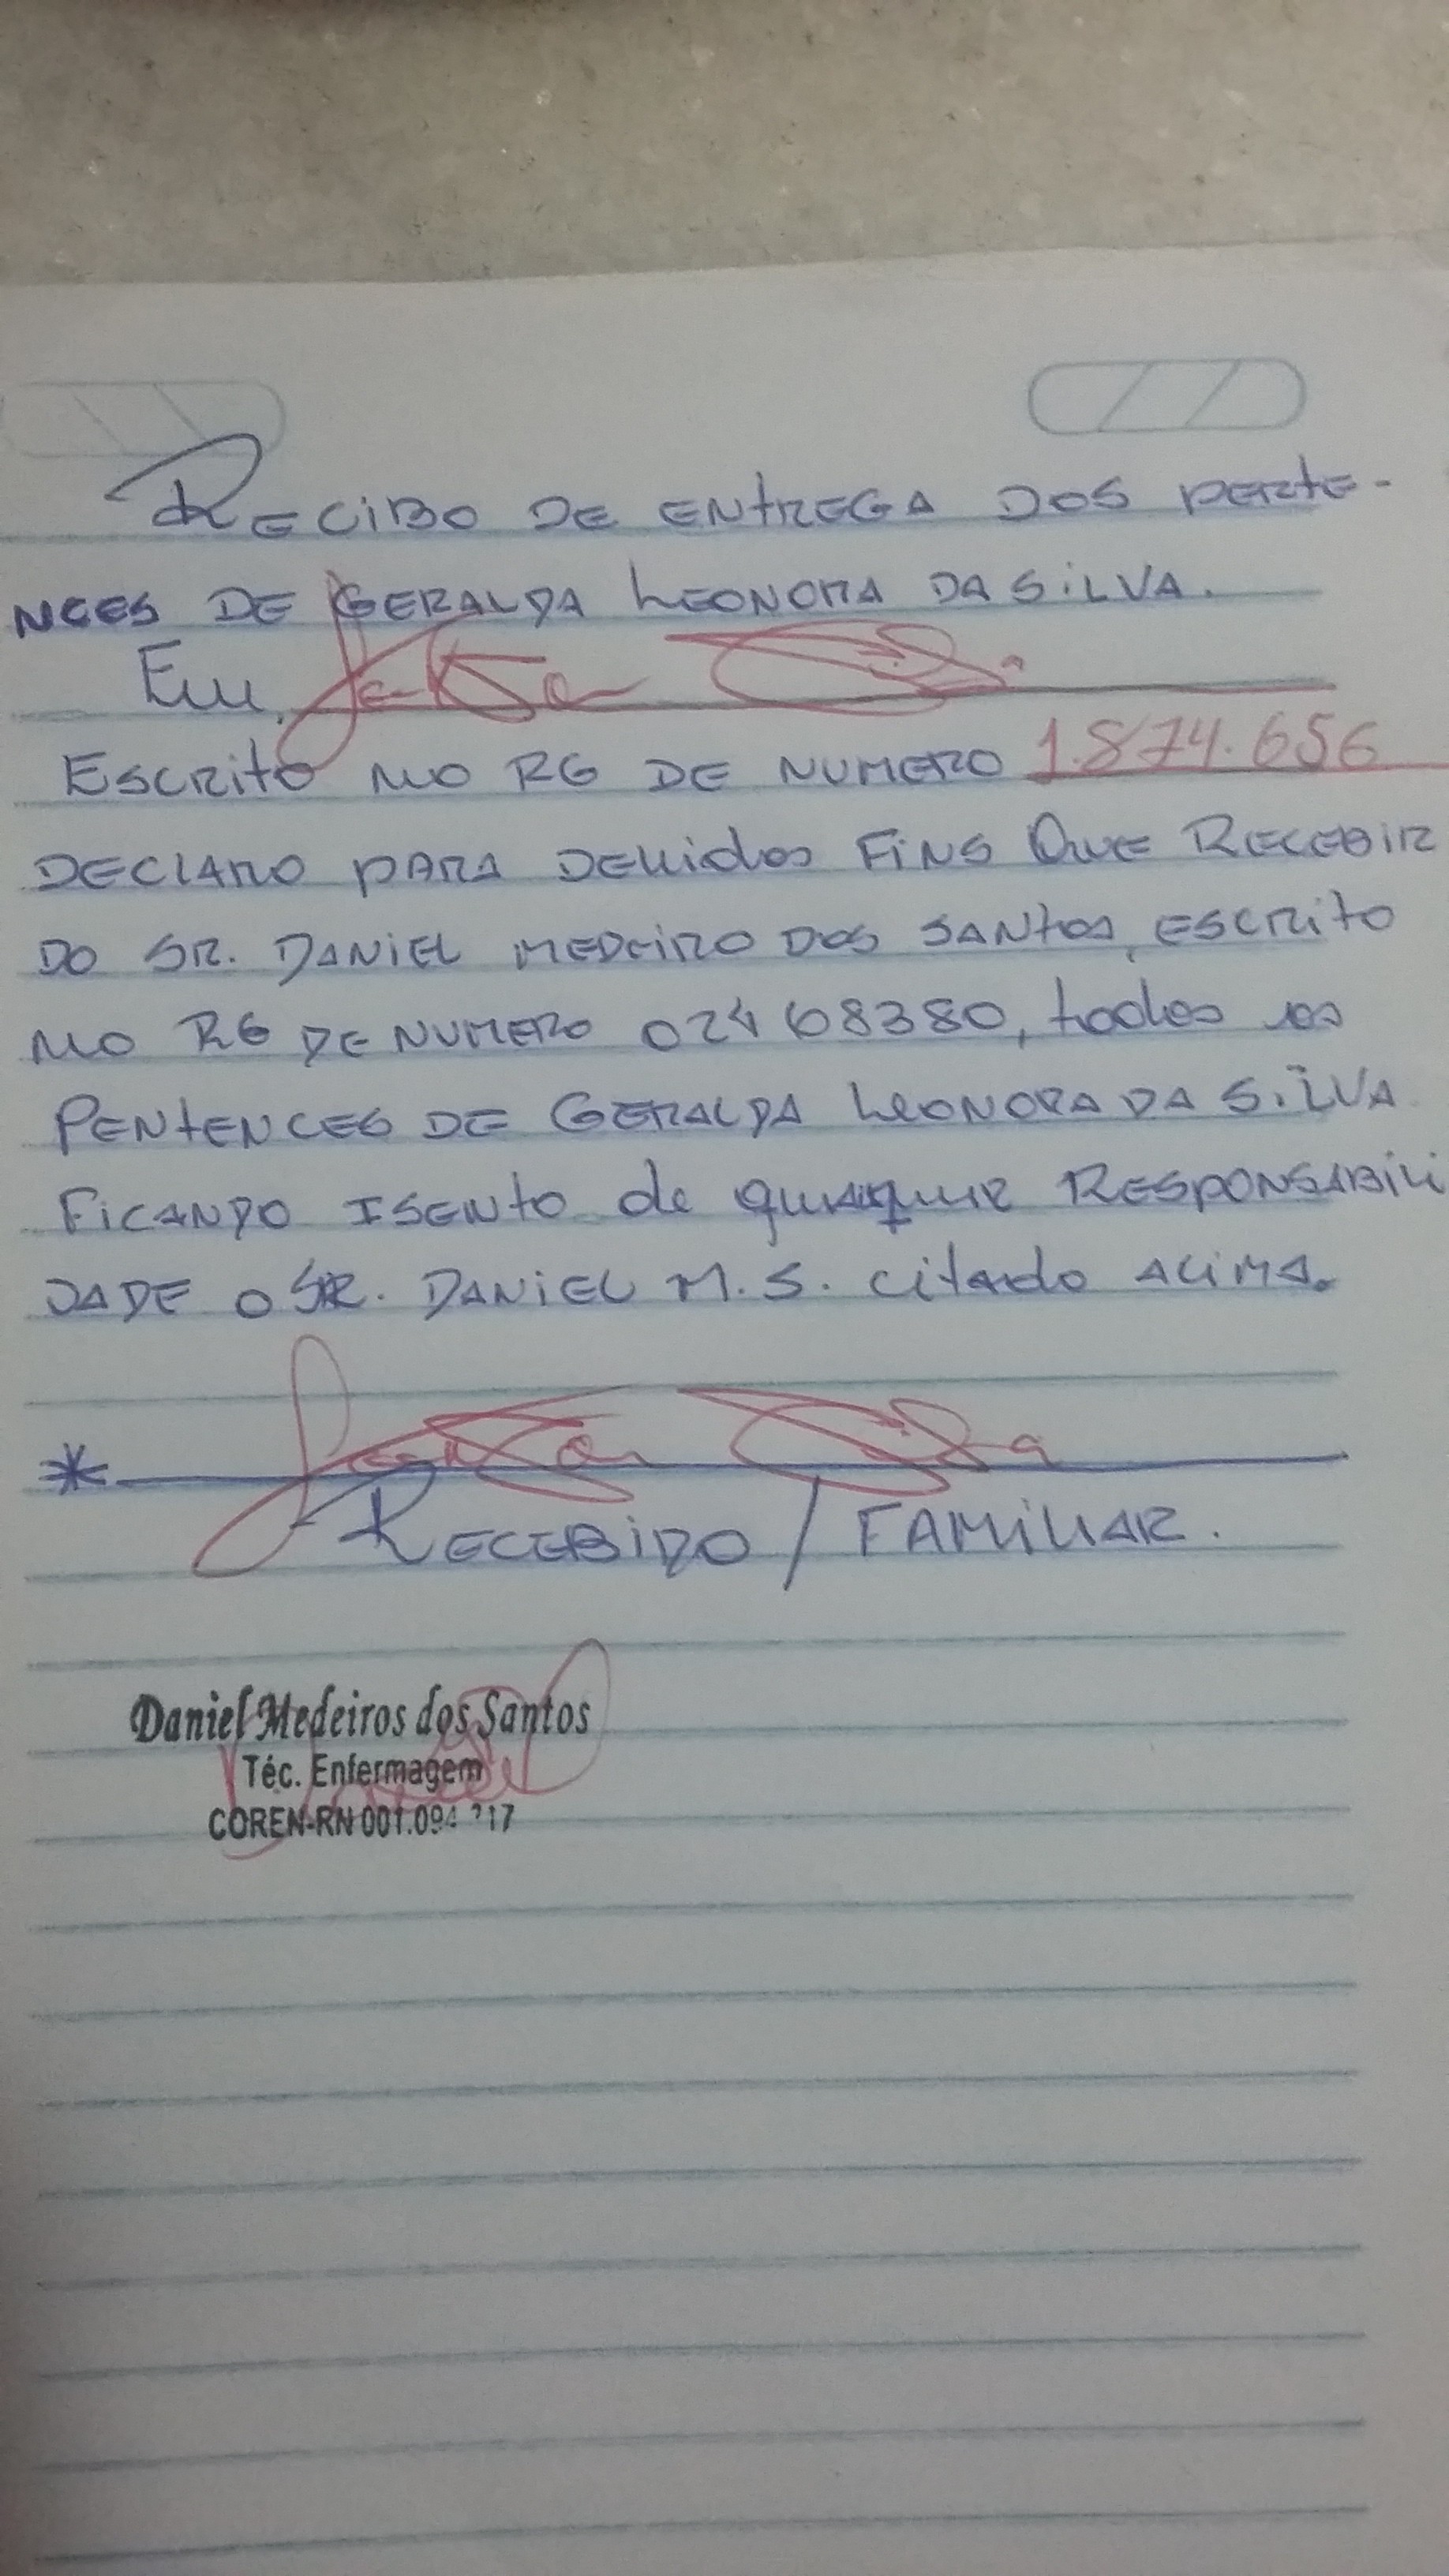 RECIBO DE ENTREGA DOS PERTE-
NCES DE GERALDA LEONORA DA SILVA.
Eu,
ESCRITO NO RG DE NUMERO 1.874.656
DECLARO PARA DEVidos FINS QUE RECEBIR
DO SR. DANIEL MEDEIRO DOS SANTOS, ESCRITO
NO RG DE NUMERO 02468380, todos os
PENTENCES DE GERALDA LEONORA DA SILVA
FICANDO ISENTO de quaquer RESPONSABILI
DADE O SR. DANIEL M.S. citado ACIMA.
*
RECEBIDO / FAMILIAR.
Daniel Medeiros dos Santos
Téc. Enfermagem
COREN-RN